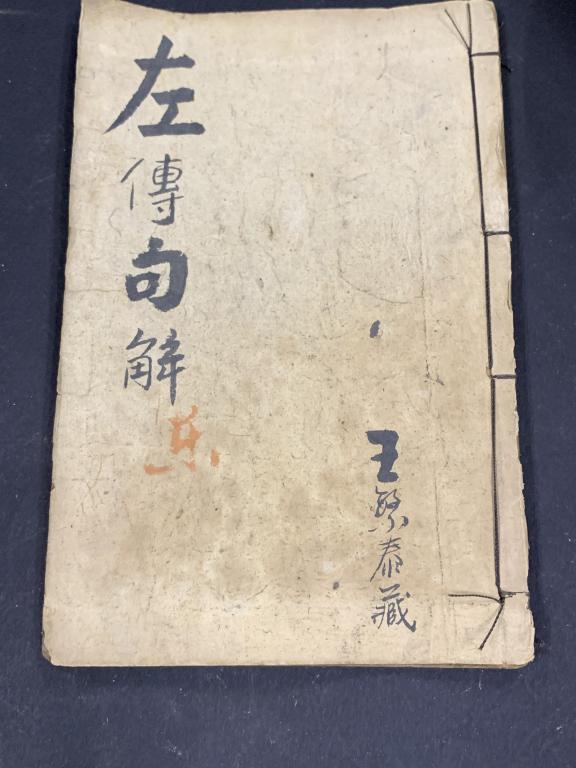 左傳句解
王繁泰藏